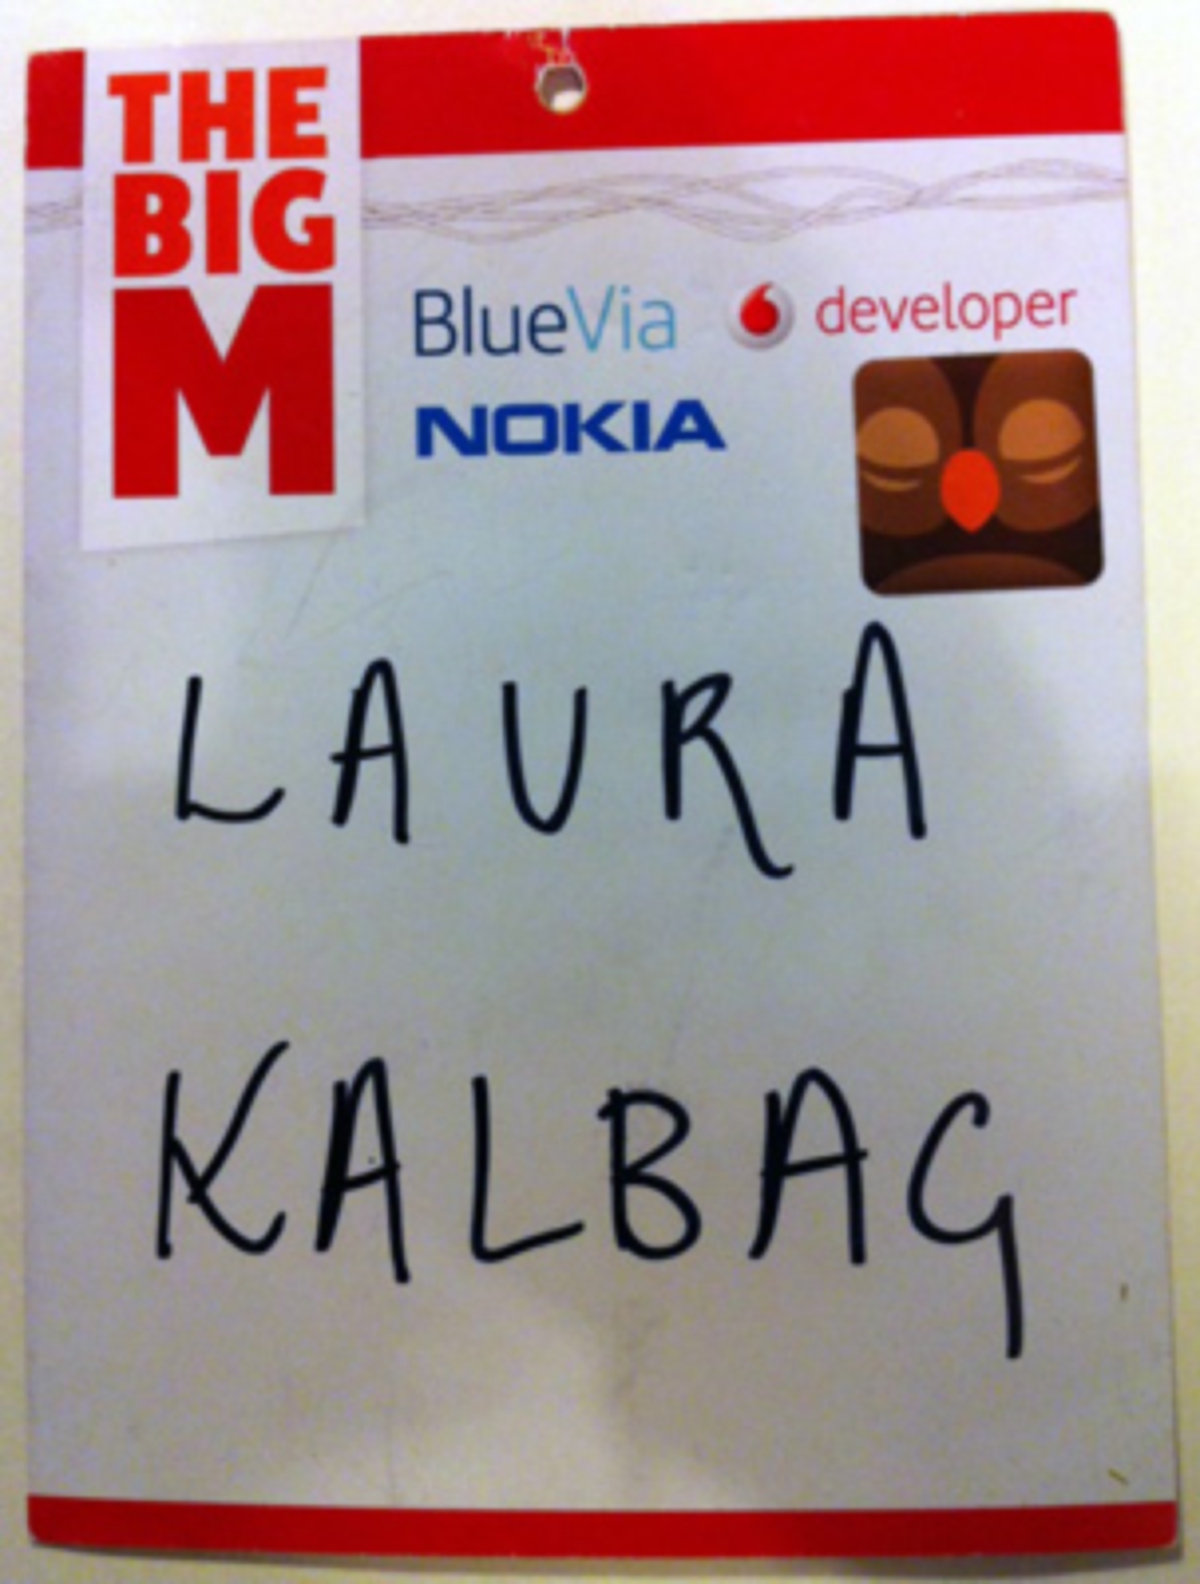 THE
BIG
M
BlueVia developer
NOKIA
LAURA
KALBAG